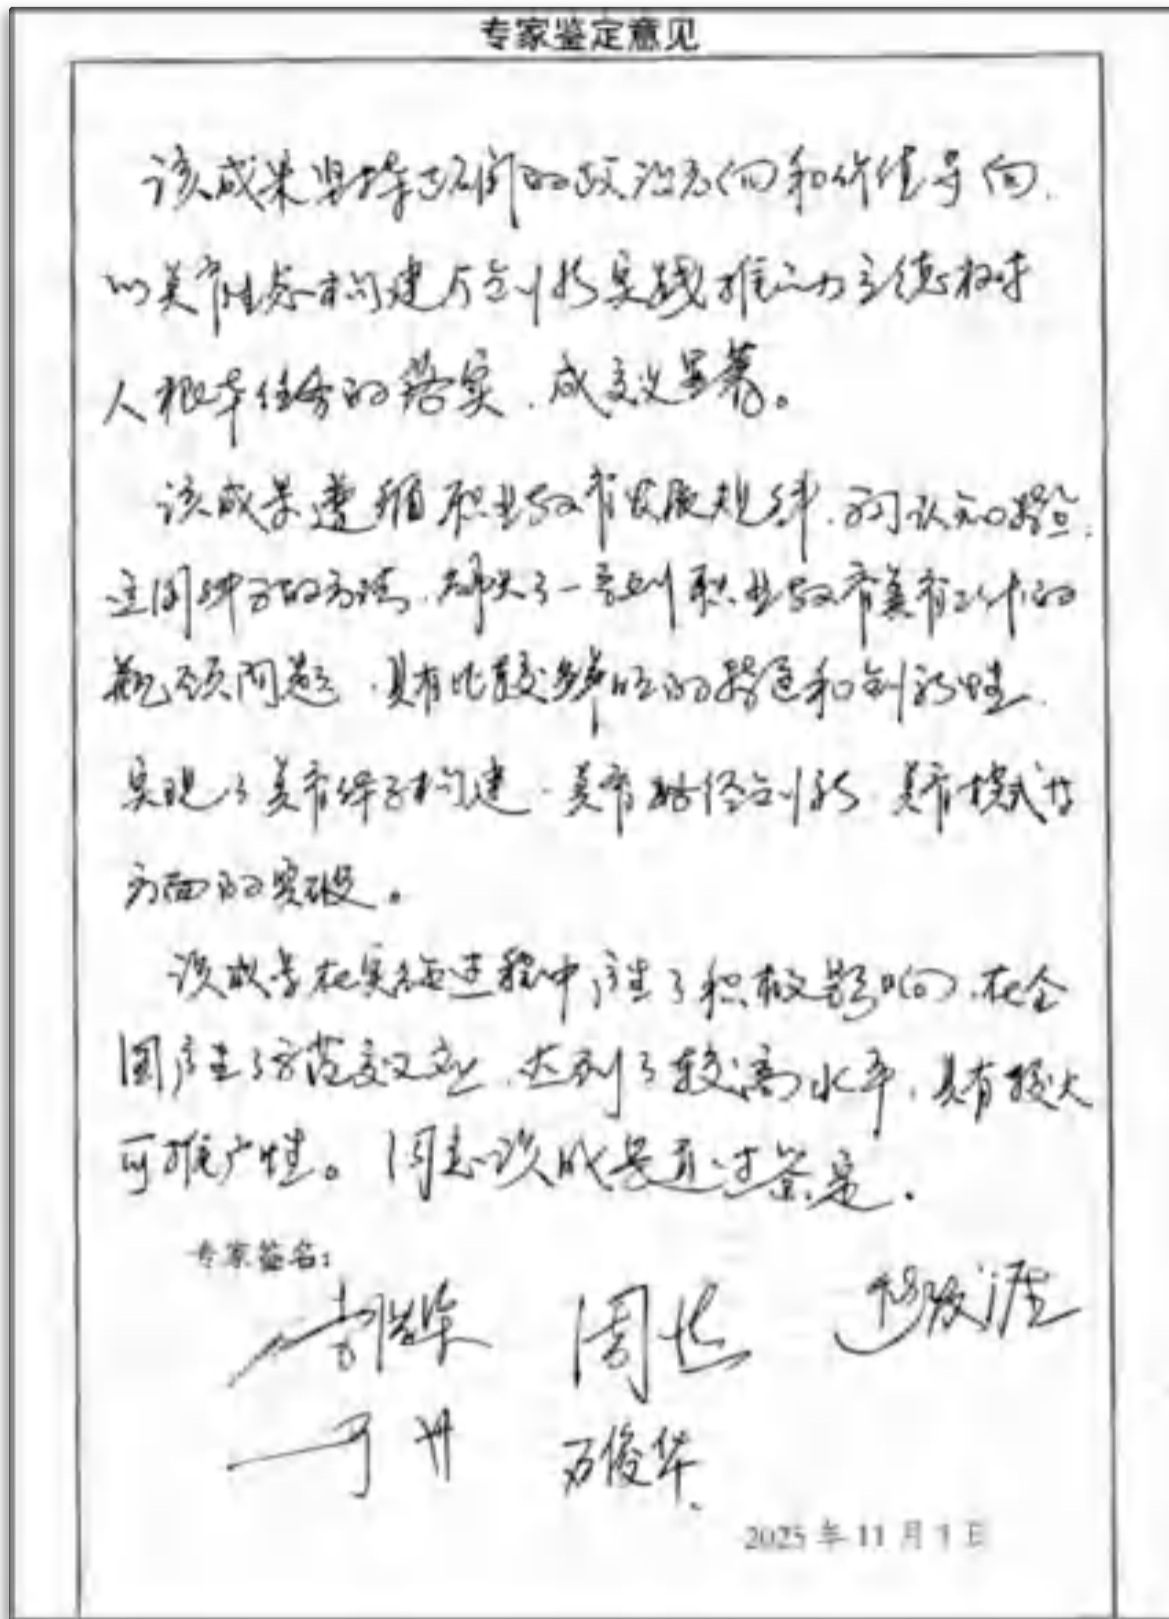 专家鉴定意见
该成果坚持正确的政治方向和价值导向,
以美育生态构建与创新实践推动立德树
人根本任务的落实,成效显著。
该成果遵循职业教育发展规律,
的方法,解决了一系列职业教育美育工作的
瓶颈问题,具有比较鲜明的特色和创新性,
实现了美育体系构建、美育路径创新、美育模式等
方面的突破。
该成果在实施过程中产生了积极影响,在全
国产生了示范效应,达到了较高水平,具有较大
可推广性。同意该成果通过鉴定。
专家签名:
周达
万俊华
2025年11月1日